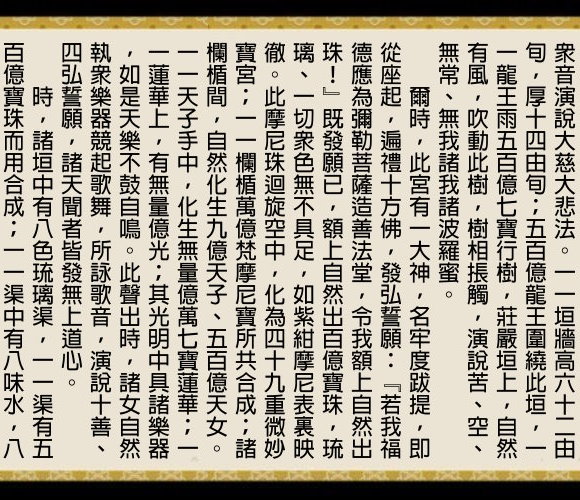 衆音演說大慈大悲法。一一垣牆高六十二由
旬，厚十四由旬；五百億龍王圍繞此垣，一
一龍王雨五百億七寶行樹，莊嚴垣上，自然
有風，吹動此樹，樹相振觸，演說苦、空、
無常、無我諸波羅蜜。
爾時，此宮有一大神，名牢度跋提，即
從座起，遍禮十方佛，發弘誓願：『若我福
德應為彌勒菩薩造善法堂，令我額上自然出
珠！』既發願已，額上自然出百億寶珠，琉
璃、一切衆色無不具足，如紫紺摩尼表裏映
徹。此摩尼珠迴旋空中，化為四十九重微妙
寶宮；一一欄楯萬億梵摩尼寶所共合成；諸
欄楯間，自然化生九億天子、五百億天女。
一一天子手中，化生無量億萬七寶蓮華；一
一蓮華上，有無量億光；其光明中具諸樂器
，如是天樂不鼓自鳴。此聲出時，諸女自然
執衆樂器競起歌舞，所詠歌音，演說十善、
四弘誓願，諸天聞者皆發無上道心。
時，諸垣中有八色琉璃渠，一一渠有五
百億寶珠而用合成；一一渠中有八味水，八